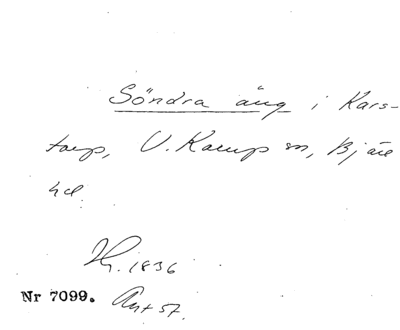 Söndra äng i Kars-
torp, V. Karup sn, Bjäre
hd.
Hy. 1836
Nr 7099. Akt 57.